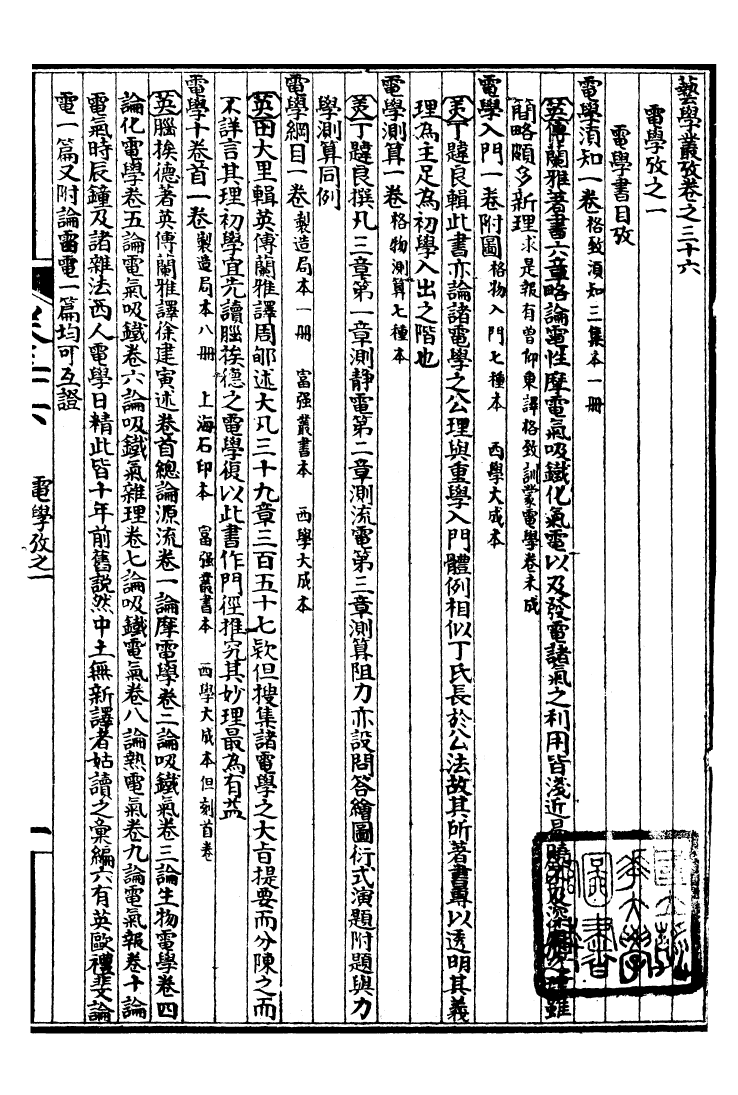 藝學叢攷卷之三十六
電學攷之一
電學書目攷
電學須知一卷 格致須知三集本一冊
英傅蘭雅著書六章略論電性摩電氣吸鐵化氣電以及發電諸氣之利用皆淺近易曉 雖
簡略頗多新理 求是報有曾仰東譯格致訓蒙電學卷未成
電學入門一卷附圖 格物入門七種本 西學大成本
美丁韙良輯此書亦論諸電學之公理與重學入門體例相似丁氏長於公法故其所著書專以透明其義
理為主足為初學入出之階也
電學測算一卷 格物測算七種本
美丁韙良撰凡三章第一章測靜電第二章測流電第三章測算阻力亦設問答繪圖衍式演題附題與力
學測算同例
電學綱目一卷 製造局本一冊 富强叢書本 西學大成本
英田大里輯英傅蘭雅譯周郇述大凡三十九章三百五十七欵但搜集諸電學之大旨提要而分陳之而
不詳言其理初學宜先讀腦挨德之電學復以此書作門徑推究其妙理最為有益
電學十卷首一卷 製造局本八冊 上海石印本 富强叢書本 西學大成本但刻首卷
英腦挨德著英傅蘭雅譯徐建寅述卷首總論源流卷一論摩電學卷二論吸鐵氣卷三論生物電學卷四
論化電學卷五論電氣吸鐵卷六論吸鐵氣雜理卷七論吸鐵電氣卷八論熱電氣卷九論電氣報卷十論
電氣時辰鐘及諸雜法西人電學日精此皆十年前舊說然中土無新譯者姑讀之彙編六有英歐禮斐論
電一篇又附論雷電一篇均可互證
電學攷之一
一